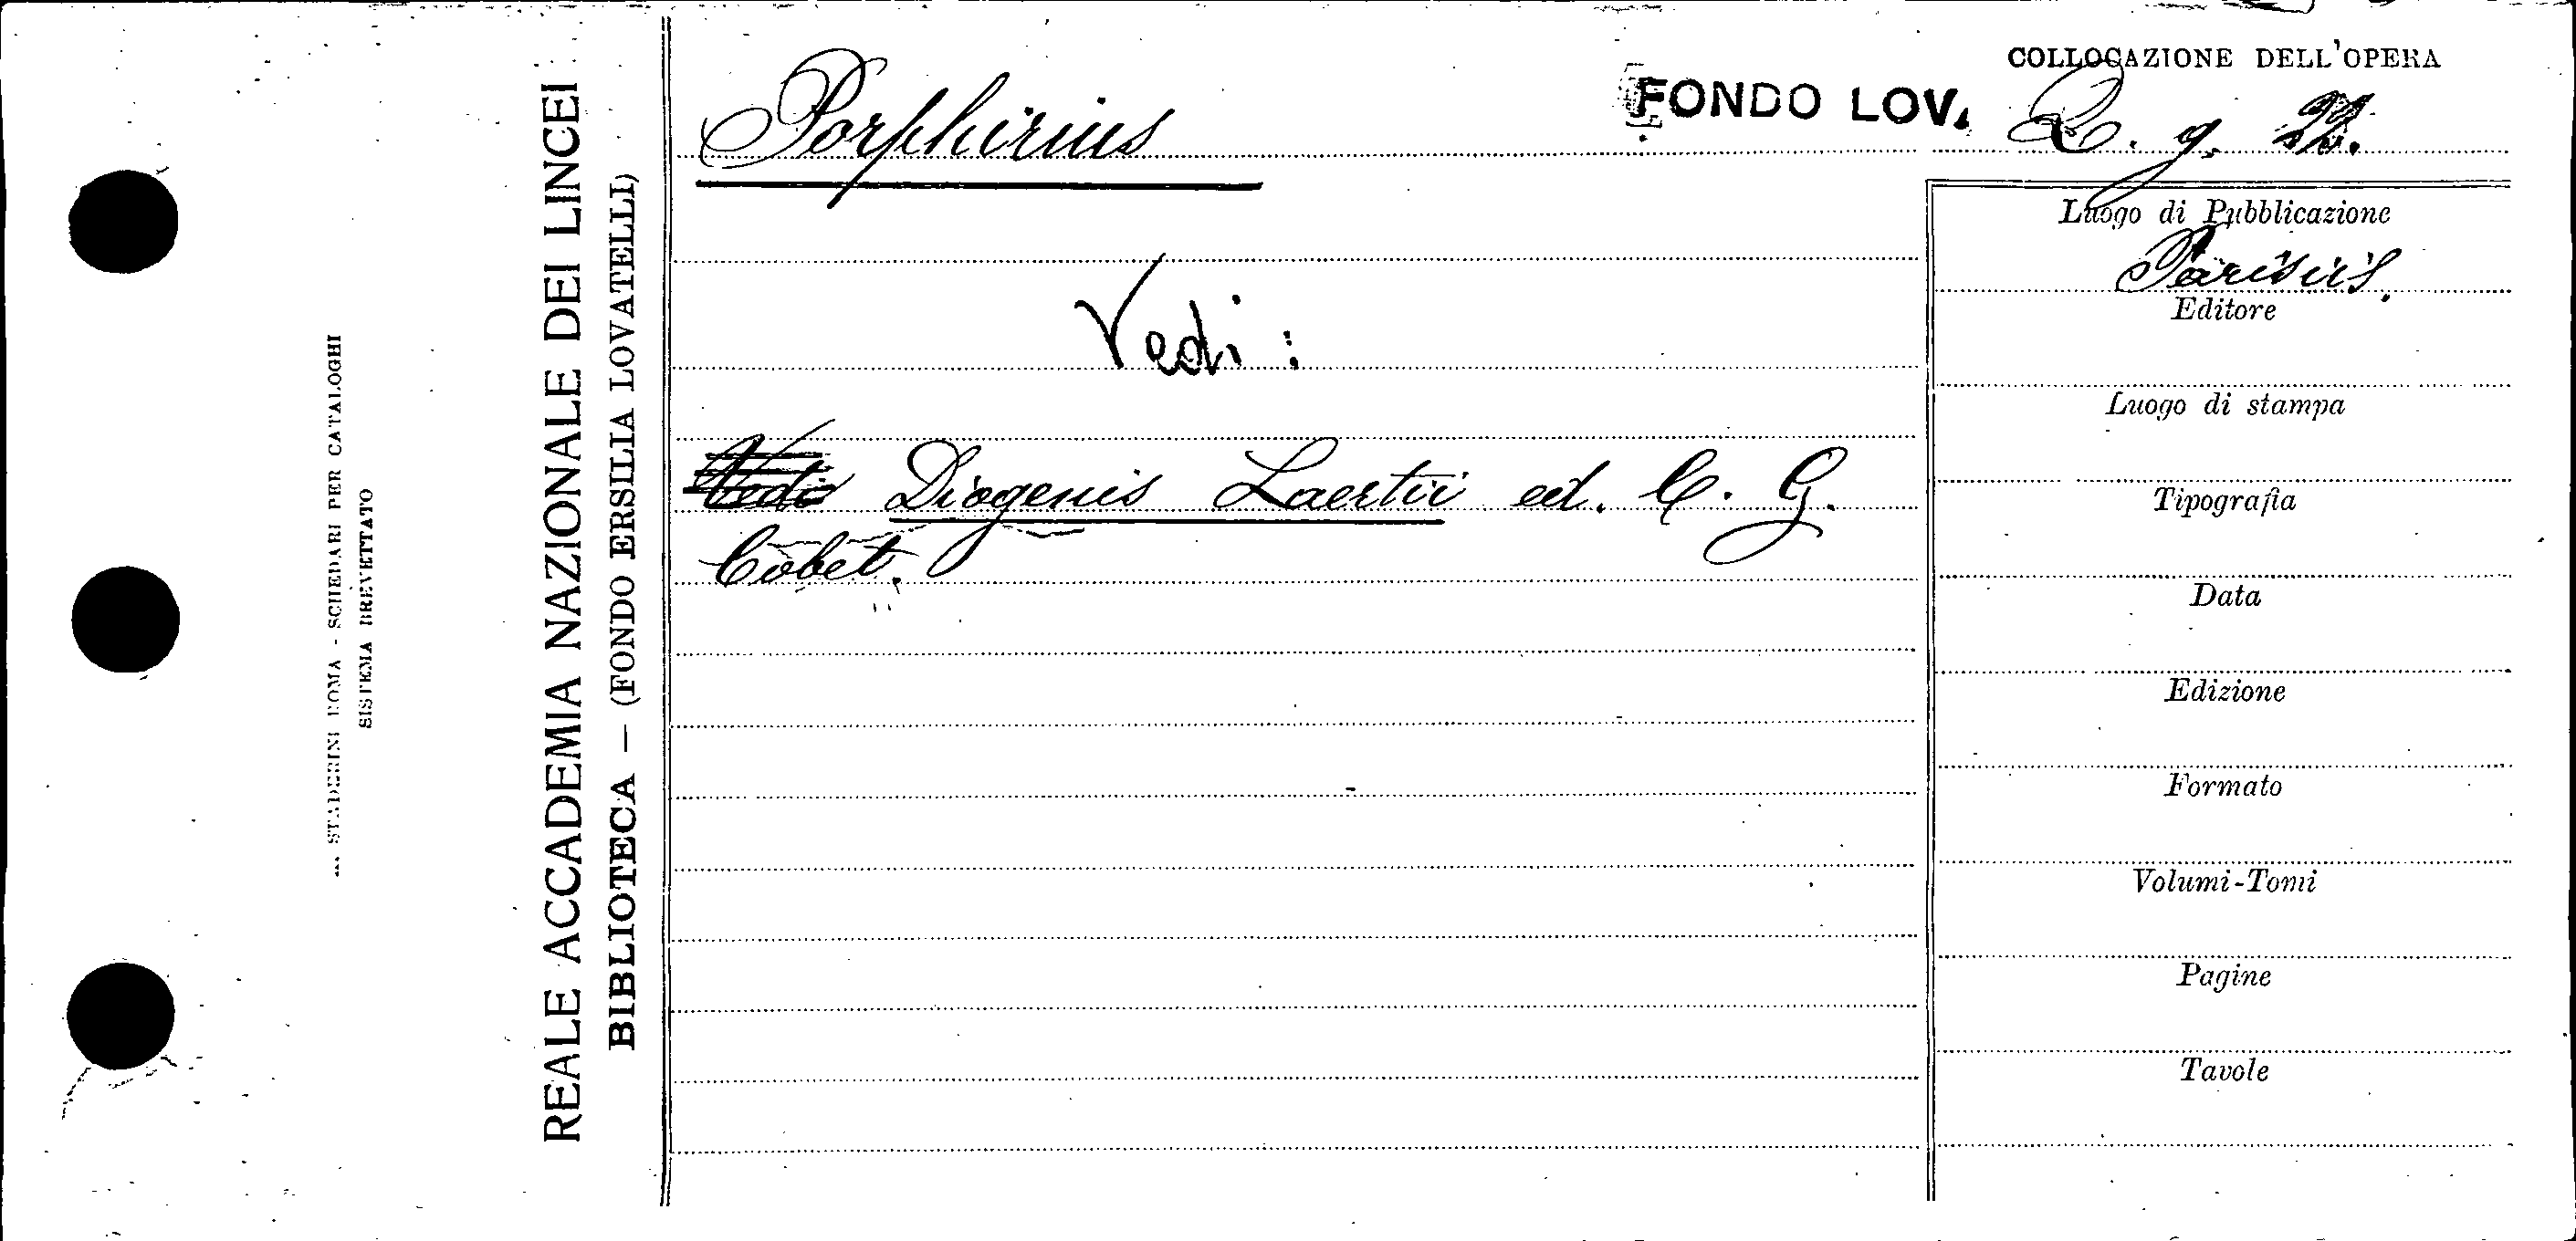 COLLOCAZIONE DELL'OPERA
Porphirius
FONDO LOV.
g. 22.
Luogo di Pubblicazione
Parisiis.
Editore
Luogo di stampa
Tipografia
Data
Edizione
Formato
Volumi-Tomi
Pagine
Tavole
Vedi:
Vedi Diogenis Laertii ed. C. G.
Cobet.
REALE ACCADEMIA NAZIONALE DEI LINCEI
BIBLIOTECA — (FONDO ERSILIA LOVATELLI)
STADERINI ROMA - SCHEDARI PER CATALOGHI
SISTEMA BREVETTATO